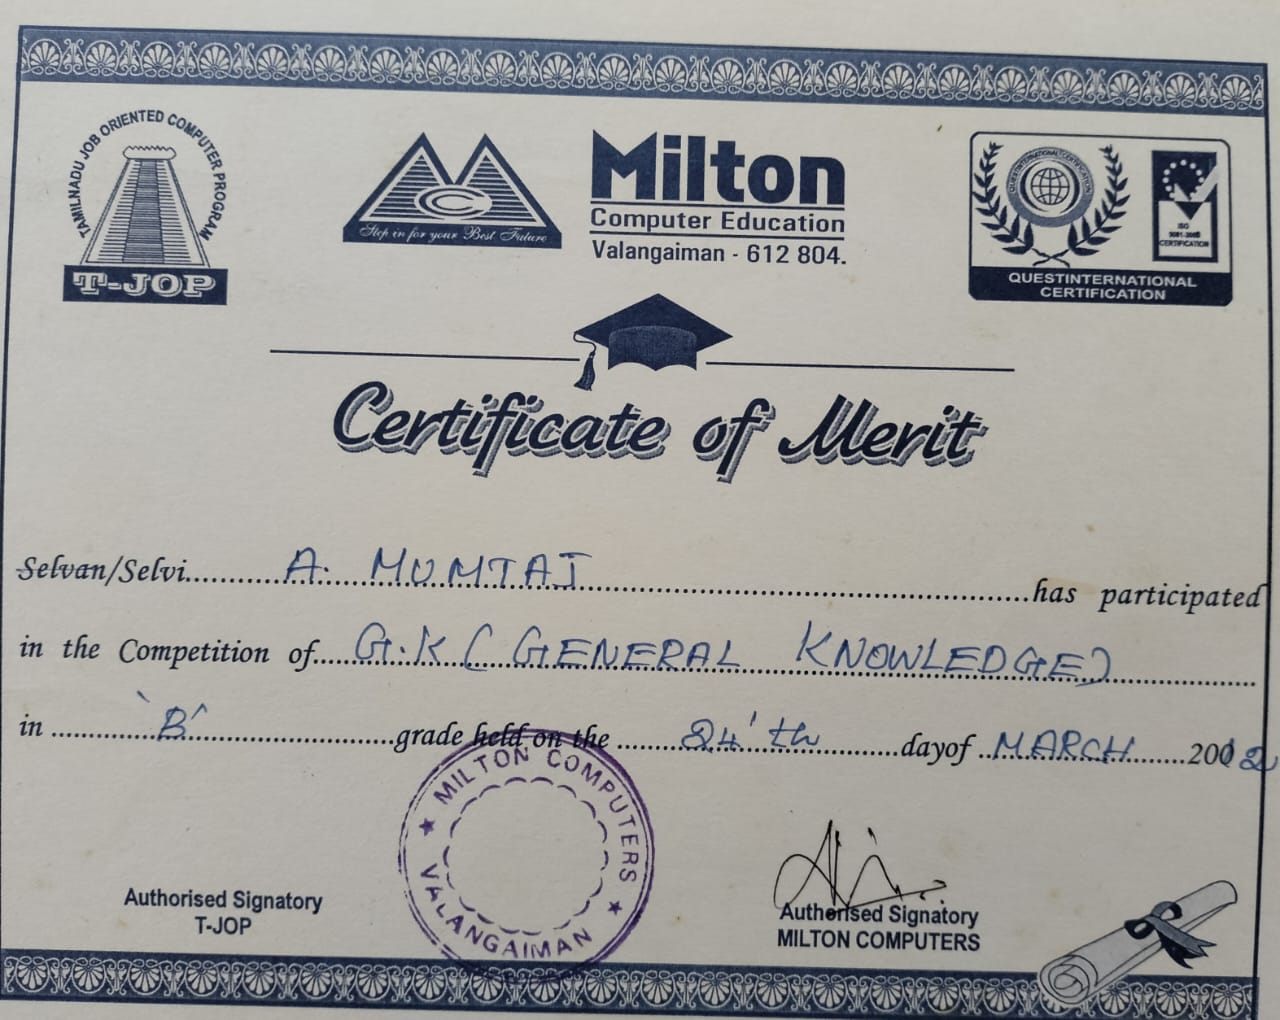 TAMILNADU JOB ORIENTED COMPUTER PROGRAM
T-JOP
C
Step in for your Best Future
Milton
Computer Education
Valangaiman - 612 804.
QUESTINTERNATIONAL CERTIFICATION
ISO
9001-2008
CERTIFICATION
QUESTINTERNATIONAL
CERTIFICATION
Certificate of Merit
Selvan/Selvi..........A. MUMTAJ..........has participated
in the Competition of....G.K ( GENERAL KNOWLEDGE)..........
in ..........'B'..........grade held on the ......24'th........dayof ..MARCH......2012
MILTON COMPUTERS
★ VALANGAIMAN ★
Authorised Signatory
T-JOP
Authorised Signatory
MILTON COMPUTERS